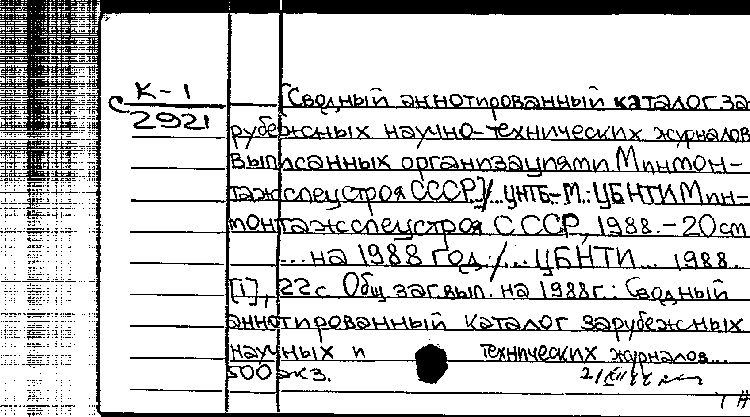 К-1
С 2921
[Сводный аннотированный каталог за-
рубежных научно-технических журналов
выписанных организациями Минмон-
тажспецстроя СССР]/...ЦНТБ.-М.: ЦБНТИ Мин-
монтажспецстроя СССР, 1988.-20 см
...на 1988 год./... ЦБНТИ... 1988.
[1], 22 с. Общ. загл. вып. на 1988 г.: Сводный
аннотированный каталог зарубежных
научных и технических журналов...
500 экз.